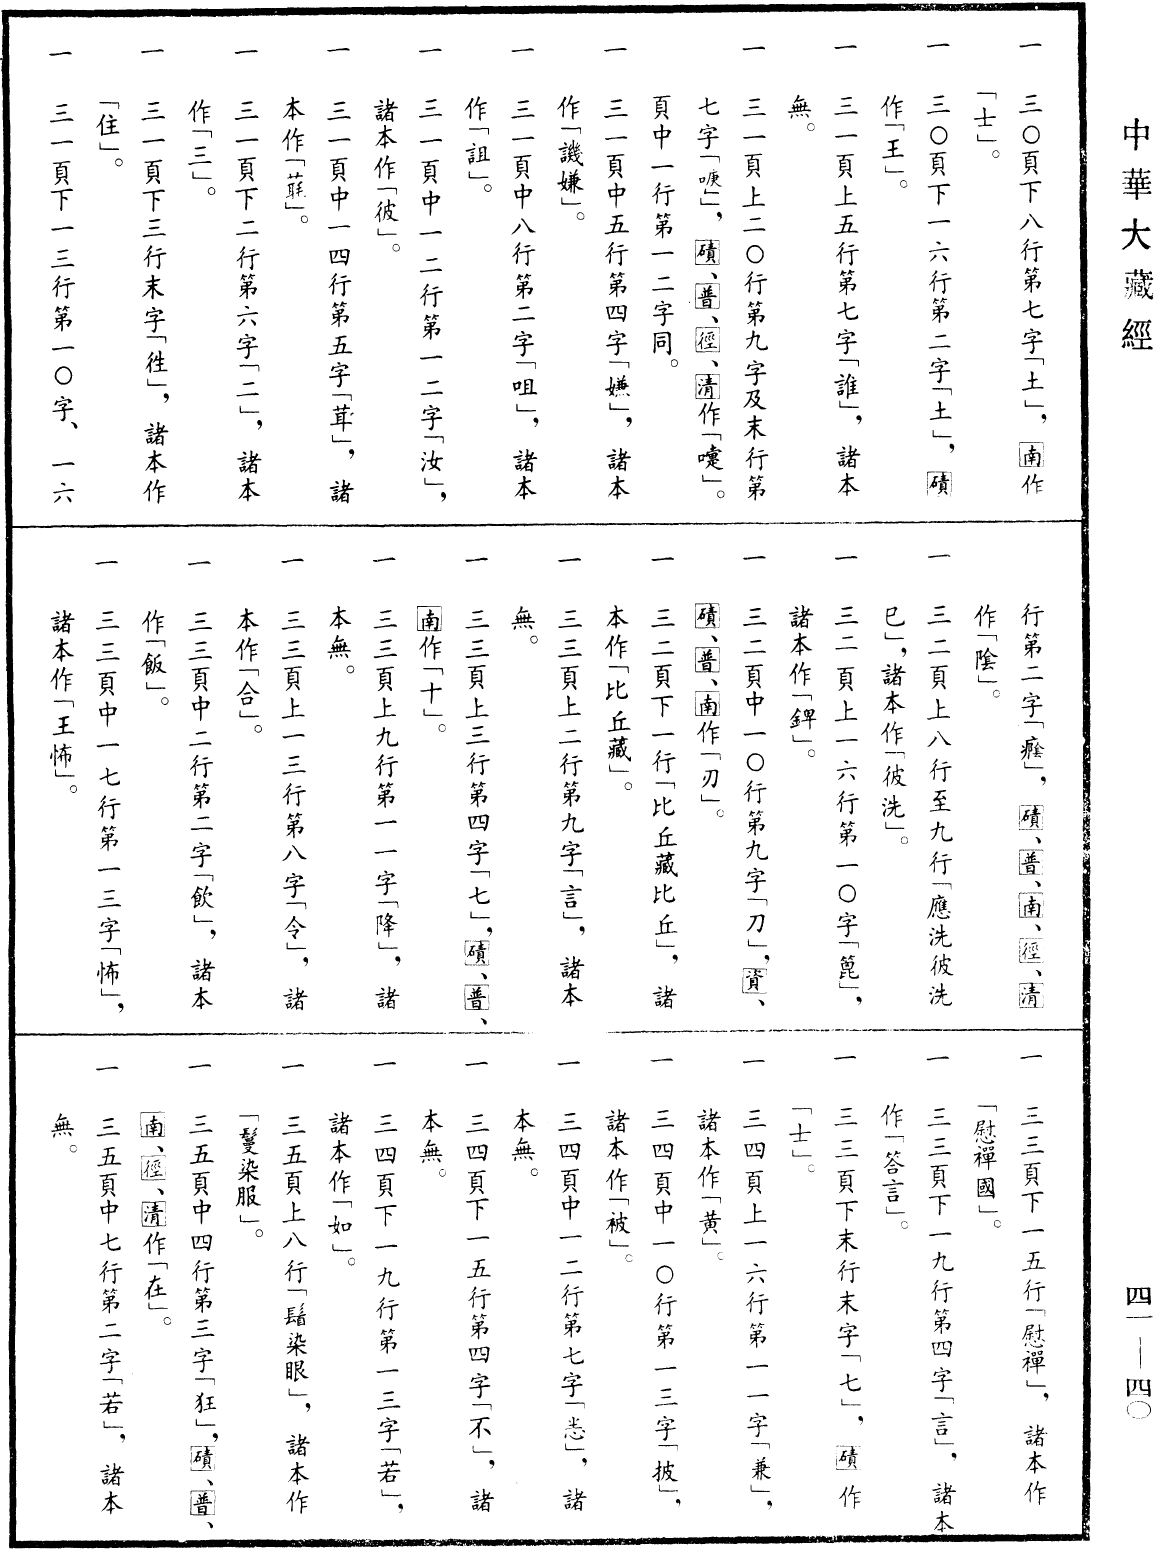 中華大藏經
一　三〇頁下八行第七字「土」，南作
「士」。
一　三〇頁下一六行第二字「土」，磧
作「王」。
一　三一頁上五行第七字「誰」，諸本
無。
一　三一頁上二〇行第九字及末行第
七字「唳」，磧、普、徑、清作「嚏」。
頁中一行第一二字同。
一　三一頁中五行第四字「嫌」，諸本
作「譏嫌」。
一　三一頁中八行第二字「咀」，諸本
作「詛」。
一　三一頁中一二行第一二字「汝」，
諸本作「彼」。
一　三一頁中一四行第五字「茸」，諸
本作「」。
一　三一頁下二行第六字「二」，諸本
作「三」。
一　三一頁下三行末字「徃」，諸本作
「住」。
一　三一頁下一三行第一〇字、一六
行第二字「癊」，磧、普、南、徑、清
作「陰」。
一　三二頁上八行至九行「應洗彼洗
已」，諸本作「彼洗」。
一　三二頁上一六行第一〇字「篦」，
諸本作「錍」。
一　三二頁中一〇行第九字「刀」，資、
磧、普、南作「刃」。
一　三二頁下一行「比丘藏比丘」，諸
本作「比丘藏」。
一　三三頁上二行第九字「言」，諸本
無。
一　三三頁上三行第四字「七」，磧、普、
南作「十」。
一　三三頁上九行第一一字「降」，諸
本無。
一　三三頁上一三行第八字「令」，諸
本作「合」。
一　三三頁中二行第二字「飲」，諸本
作「飯」。
一　三三頁中一七行第一三字「怖」，
諸本作「王怖」。
一　三三頁下一五行「慰禪」，諸本作
「慰禪國」。
一　三三頁下一九行第四字「言」，諸本
作「答言」。
一　三三頁下末行末字「七」，磧作
「士」。
一　三四頁上一六行第一一字「兼」，
諸本作「黄」。
一　三四頁中一〇行第一三字「披」，
諸本作「被」。
一　三四頁中一二行第七字「恚」，諸
本無。
一　三四頁下一五行第四字「不」，諸
本無。
一　三四頁下一九行第一三字「若」，
諸本作「如」。
一　三五頁上八行「鬍染眼」，諸本作
「鬘染服」。
一　三五頁中四行第三字「狂」，磧、普、
南、徑、清作「在」。
一　三五頁中七行第二字「若」，諸本
無。
四一—四〇